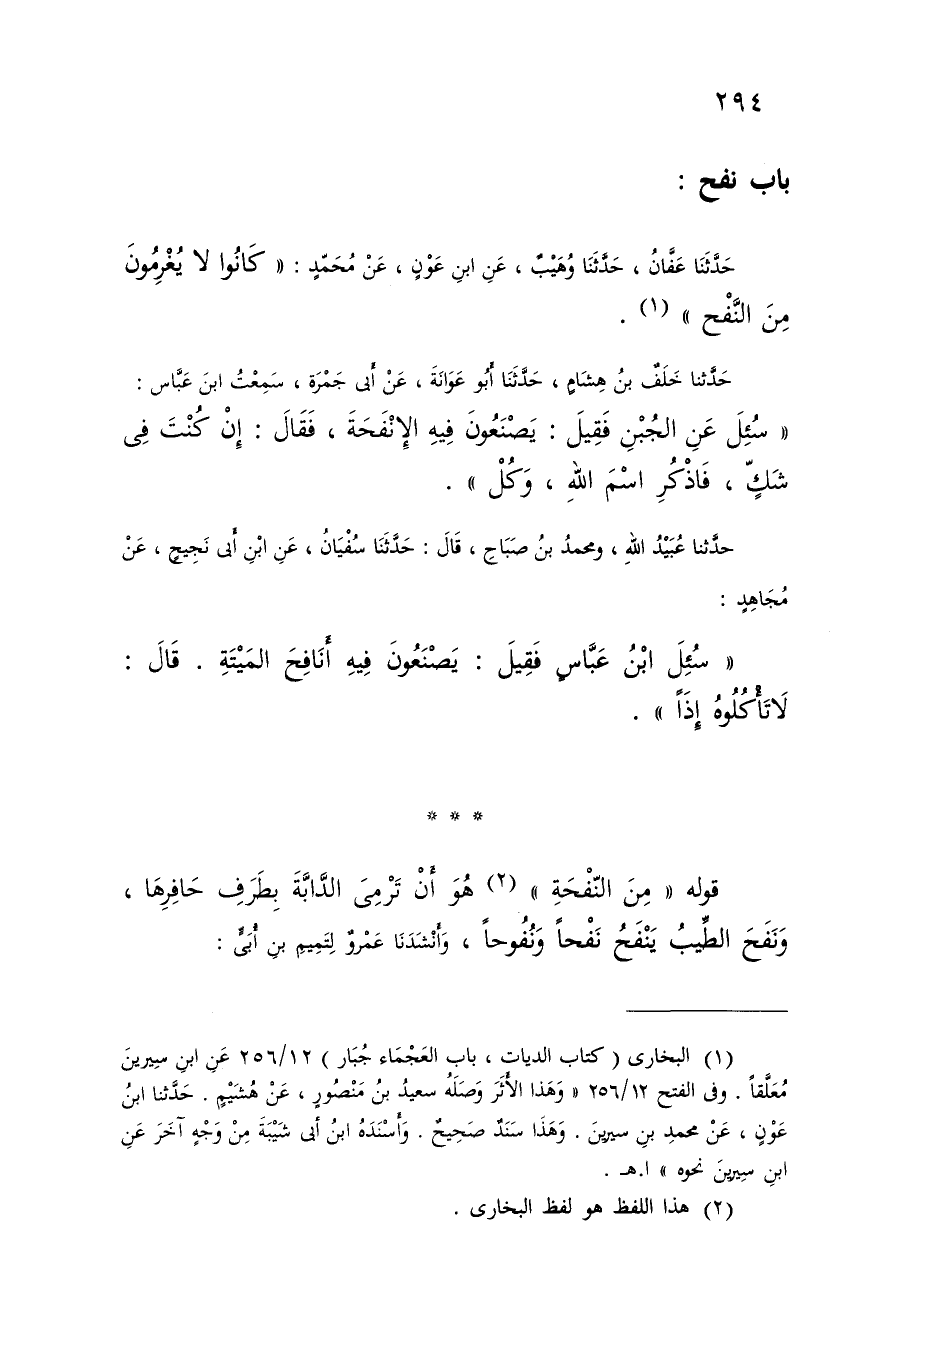 ٢٩٤
باب نفح :
حَدَّثَنَا عَفَّانُ ، حَدَّثَنَا وُهَيْبٌ ، عَنِ ابنِ عَوْنٍ ، عَنْ مُحَمّدٍ : « كَانُوا لا يُغْرِمُونَ
مِنَ النَّفْح » (١) .
حَدَّثنا خَلَفٌ بنُ هِشَامٍ ، حَدَّثَنَا أَبُو عَوَانَةَ ، عَنْ أَبى جَمْرَة ، سَمِعْتُ ابنَ عَبَّاس :
« سُئِلَ عَنِ الجُبْنِ فَقِيلَ : يَصْنَعُونَ فِيهِ الإِنْفَحَةَ ، فَقَالَ : إِنْ كُنْتَ فِى
شَكٍّ ، فَاذْكُرِ اسْمَ اللهِ ، وَكُلْ » .
حدَّثنا عُبَيْدُ اللهِ ، ومحمدُ بنُ صَبَاحٍ ، قَالَ : حَدَّثَنَا سُفْيَانُ ، عَنِ ابْنِ أَبى نَجِيحٍ ، عَنْ
مُجَاهِدٍ :
« سُئِلَ ابْنُ عَبَّاسٍ فَقِيلَ : يَصْنَعُونَ فِيهِ أَنَافِحَ المَيْتَةِ . قَالَ :
لَاتَأْكُلُوهُ إِذَاً » .
* * *
قوله « مِنَ النّفْحَةِ » (٢) هُوَ أَنْ تَرْمِىَ الدَّابَّةَ بِطَرَفِ حَافِرِهَا ،
وَنَفَحَ الطِّيبُ يَنْفَحُ نَفْحاً وَنُفُوحاً ، وَأَنْشَدَنَا عَمْروٌ لِتَمِيمِ بنِ أُبَىٍّ :
(١) البخارى ( كتاب الديات ، باب العَجْمَاء جُبَار ) ٢٥٦/١٢ عَنِ ابنِ سِيرينَ
مُعَلَّقاً . وفى الفتح ٢٥٦/١٢ « وَهَذا الأَثَرَ وَصَلَهُ سعيدُ بنُ مَنْصُورٍ ، عَنْ هُشَيْمٍ . حَدَّثنا ابنُ
عَوْنٍ ، عَنْ محمدِ بنِ سيرينَ . وَهَذَا سَنَدٌ صَحِيحٌ . وَأَسْنَدَهُ ابنُ أبى شَيْبَةَ مِنْ وَجْهٍ آخَرَ عَنِ
ابنِ سِيرينَ نحوه » ا.هـ .
(٢) هذا اللفظ هو لفظ البخارى .